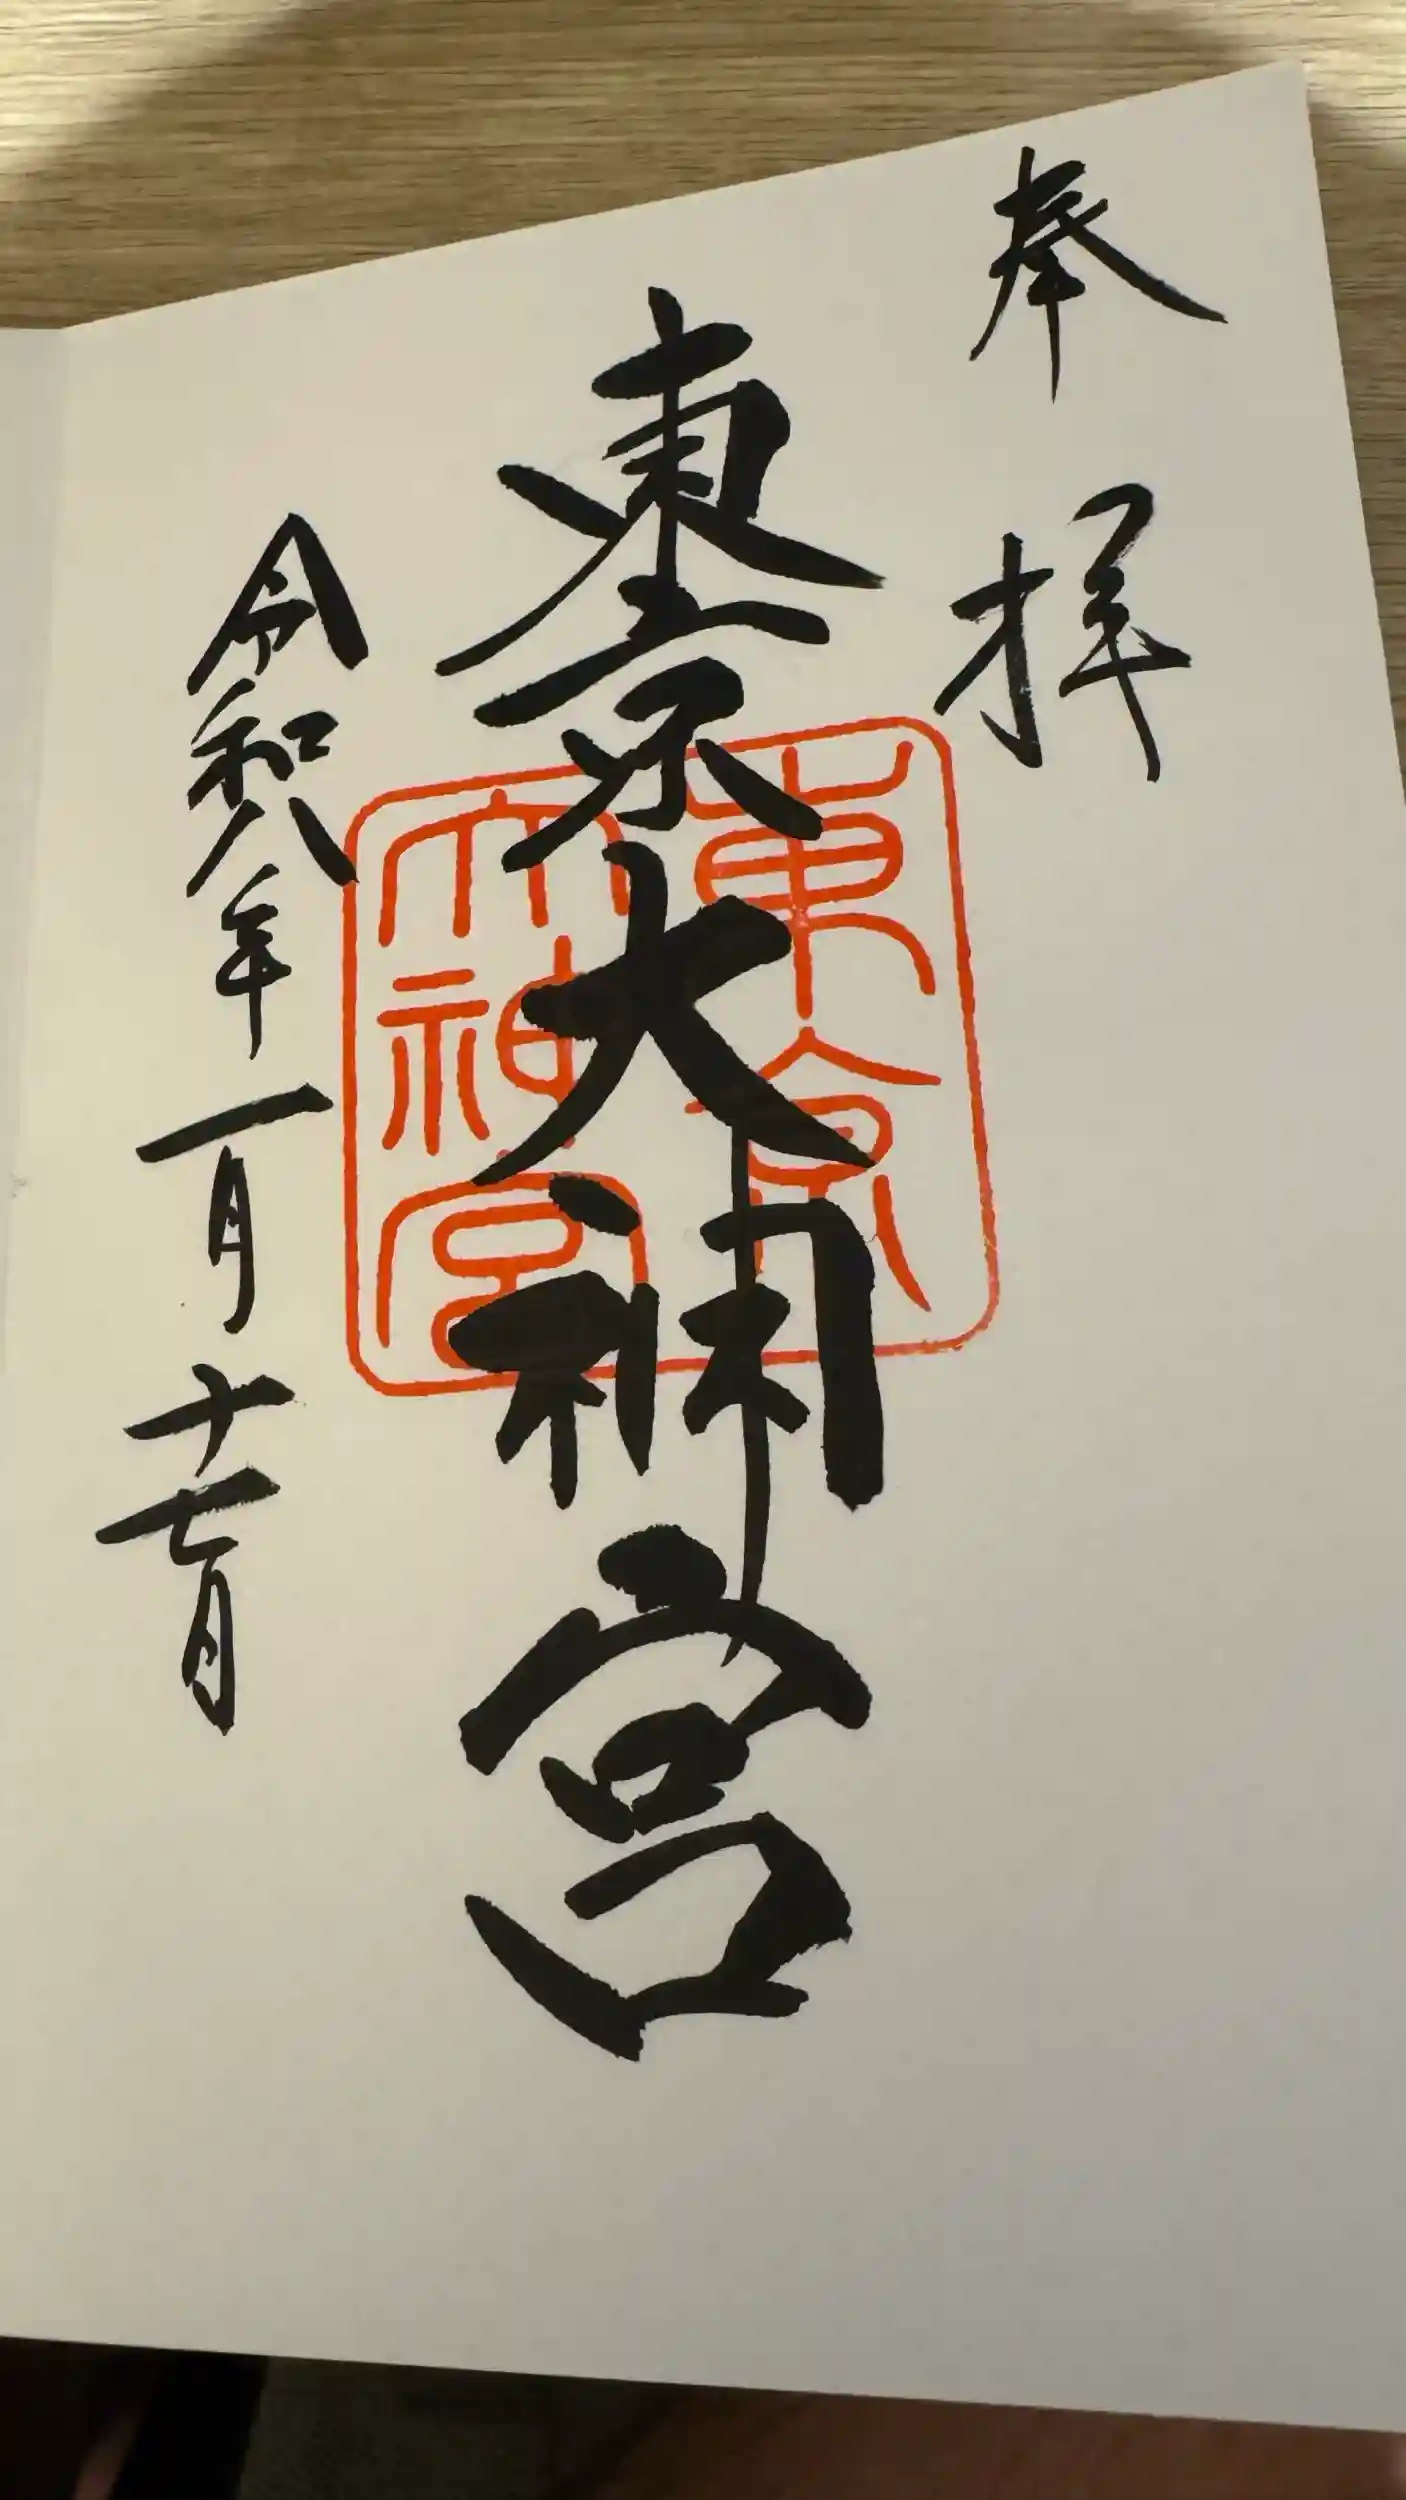 奉拝
東京大神宮
東京
大神宮
令和八年一月十七日